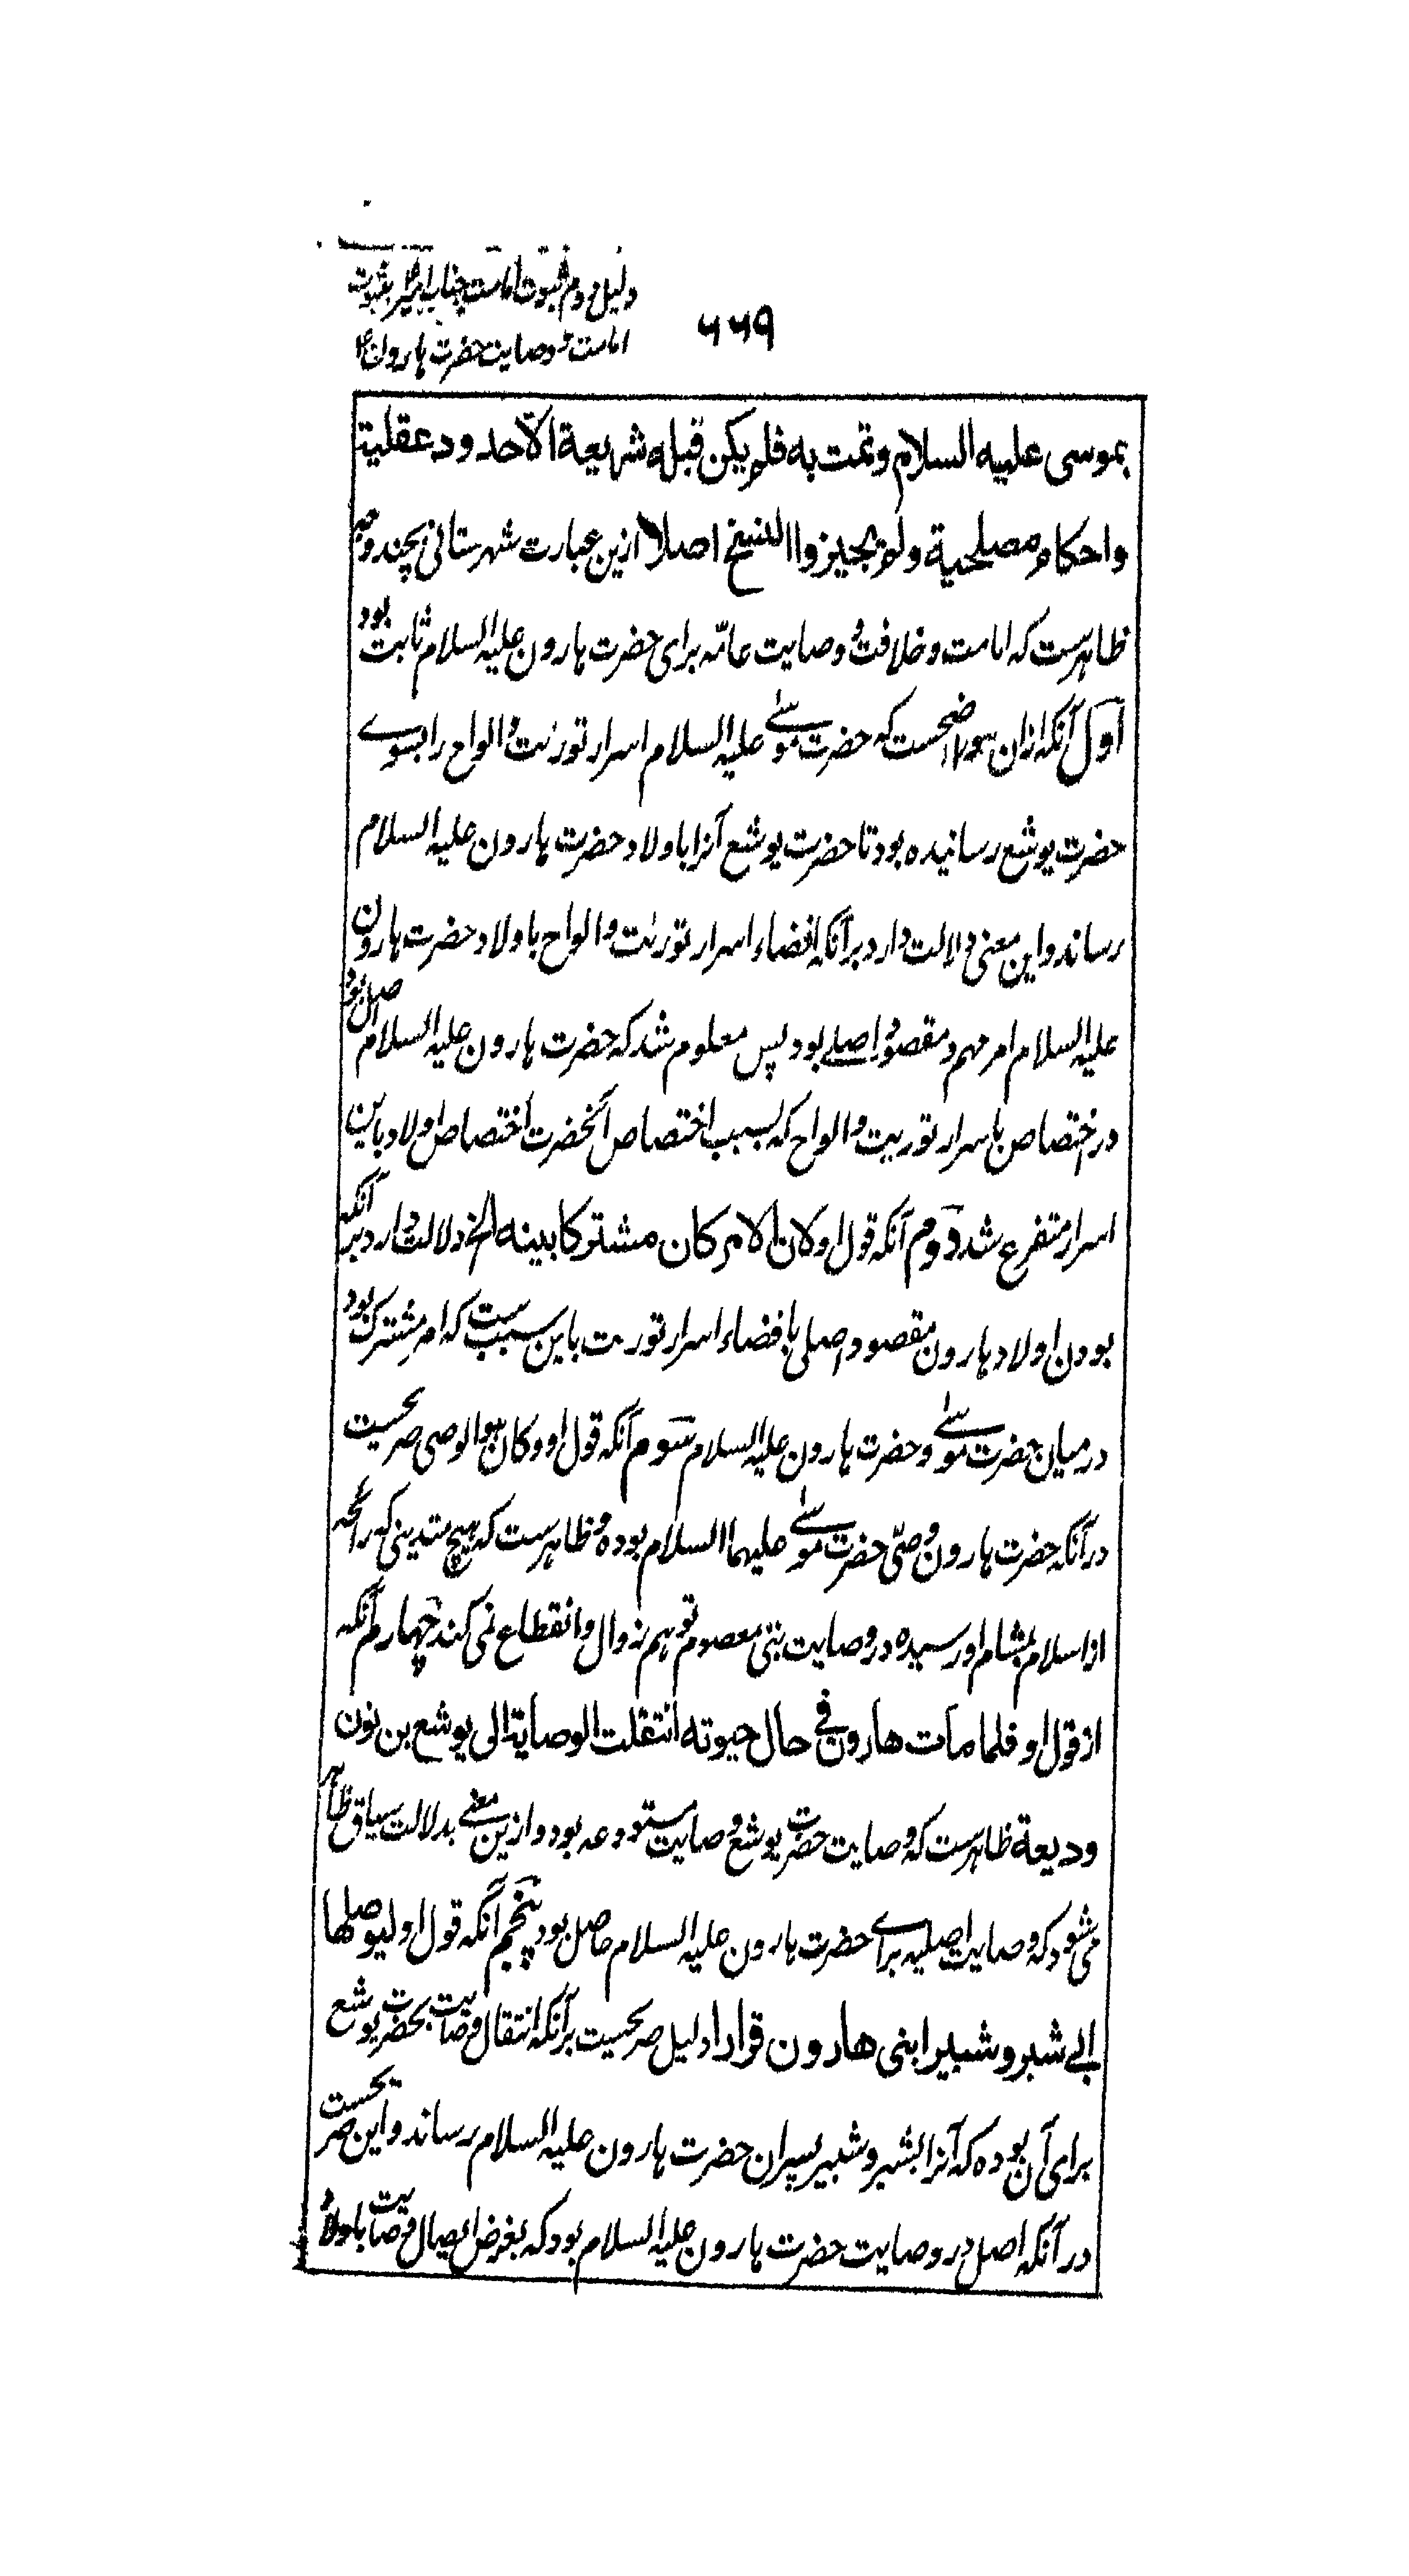 دلیل دوم ثبوت امامت جناب امیرؑ بثبوت
امامت و وصایت حضرت هارونؑ
۶۶۹
بموسی علیه السلام وتمت به فلم یکن قبله شریعة الّا حدود عقلیة
واحکام مصلحیة ولم یجیزوا النسخ اصلا ازین عبارت شهرستانی بچند وجه
ظاهرست که امامت و خلافت و وصایت عامّه برای حضرت هارون علیه السلام ثابت بود
اول آنکه ازان واضحست که حضرت موسی علیه السلام اسرار توریٰت و الواح را بسوے
حضرت یوشع رسانیده بود تا حضرت یوشع آنرا باولاد حضرت هارون علیه السلام
رساند و این معنی دلالت دارد برآنکه افضاء اسرار توریٰت و الواح باولاد حضرت هارون
علیه السلام امر مهم و مقصود اصلے بود پس معلوم شد که حضرت هارون علیه السلام اصل بود
در اختصاص باسرار توریت و الواح که بسبب اختصاص آنحضرت اختصاص اولاد باین
اسرار متفرع شد دوم آنکه قول او لان الامر کان مشترکا بینه الخ دلالت دارد بر آنکه
بودن اولاد هارون مقصود اصلی بافضاء اسرار توریت باین سبب ست که امر مشترک بود
در میان حضرت موسیٰ و حضرت هارون علیه السلام سوم آنکه قول او وکان هو الوصی صریحست
در آنکه حضرت هارون وصیّ حضرت موسیٰ علیهما السلام بوده و ظاهرست که هیچ متدینی که رائحه
از اسلام بمشام او رسیده در وصایت نبی معصوم توهم زوال و انقطاع نمی کند چهارم آنکه
از قول او فلما مات هارون فی حال حیوته انتقلت الوصایة الی یوشع بن نون
ودیعة ظاهرست که وصایت حضرت یوشع وصایت مستودعه بود و ازین معنے بدلالت سیاق ظاهر
می شود که وصایت اصلیه براے حضرت هارون علیه السلام حاصل بود پنجم آنکه قول او لیوصلها
الی شبر و شبیر ابنی هارون قرارا دلیل صریحست برآنکه انتقال وصایت بحضرت یوشع
برای آن بوده که آنرا بشبر و شبیر پسران حضرت هارون علیه السلام رساند و این صریحست
در آنکه اصل در وصایت حضرت هارون علیه السلام بود که بغرض ایصال وصایت باولاد